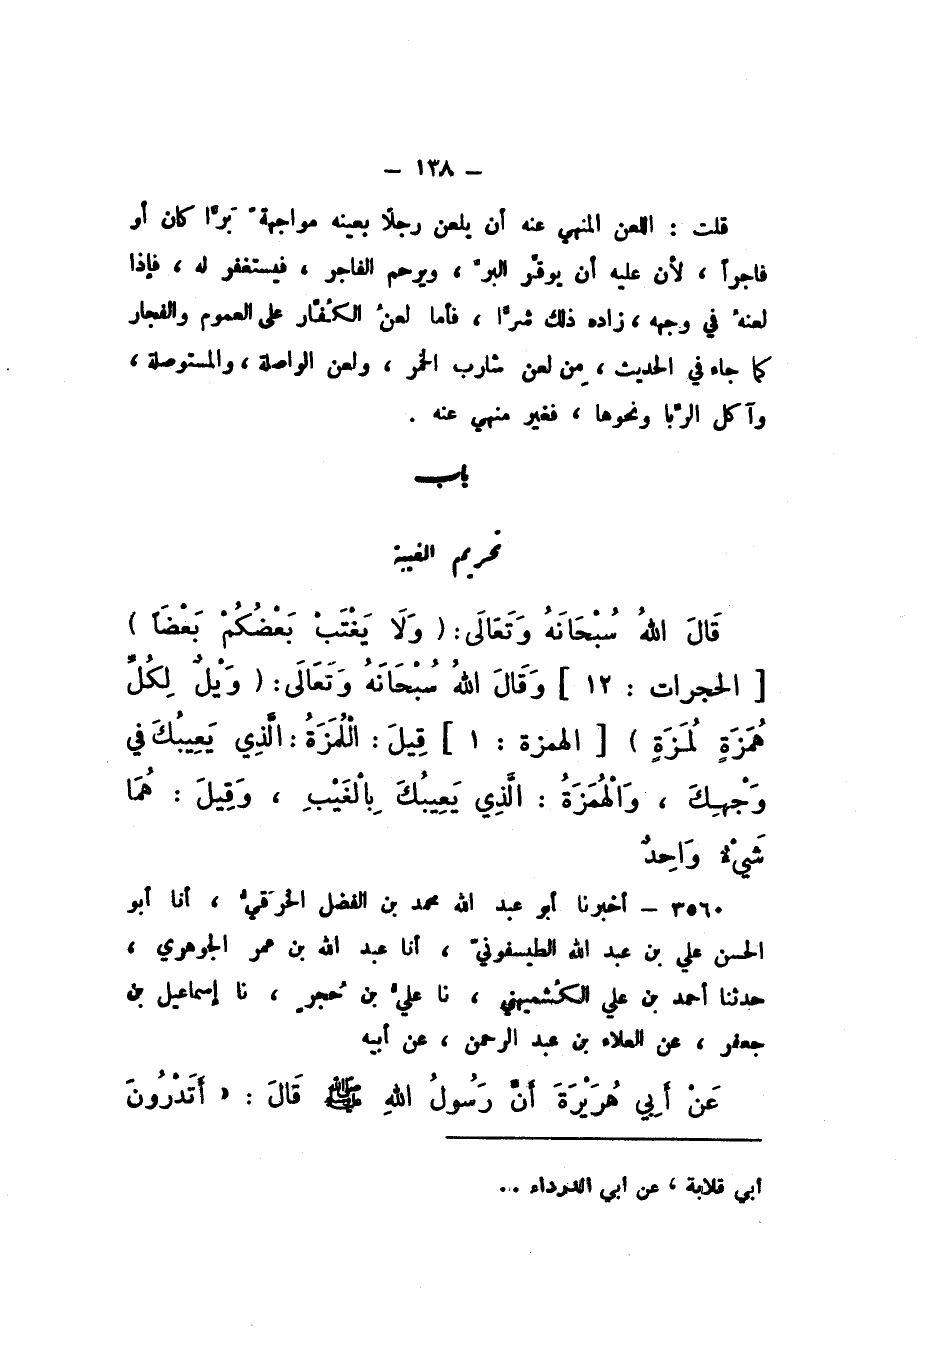 – ١٣٨ –
قلت : اللعن المنهي عنه أن يلعن رجلًا بعينه مواجهةً بَرًّا كان أو
فاجراً ، لأن عليه أن يوقّر البرّ ، ويرحم الفاجر ، فيستغفر له ، فإذا
لعنهُ في وجهه ، زاده ذلك شرًّا ، فأما لعنُ الكُفّار على العموم والفجار
كما جاء في الحديث ، مِن لعن شارب الخمر ، ولعن الواصلة ، والمستوصلة ،
وآكل الرّبا ونحوها ، فغير منهي عنه .
باب
تحريم الغيبة
قَالَ اللهُ سُبْحَانَهُ وَتَعَالَى : ( وَلَا يَغْتَبْ بَعْضُكُمْ بَعْضَاً )
[ الحجرات : ١٢ ] وَقَالَ اللهُ سُبْحَانَهُ وَتَعَالَى : ( وَيْلٌ لِكُلِّ
هُمَزَةٍ لُمَزَةٍ ) [ الهمزة : ١ ] قِيلَ : اللُّمَزَةُ : الَّذِي يَعِيبُكَ في
وَجْهِكَ ، وَالْهُمَزَةُ : الَّذِي يَعِيبُكَ بِالْغَيْبِ ، وَقِيلَ : هُمَا
شَيْءٌ وَاحِدٌ
٣٥٦٠ – أخبرنا أبو عبد الله محمد بن الفضل الخرَقيُّ ، أنا أبو
الحسن علي بن عبد الله الطيسفونيّ ، أنا عبد الله بن عمر الجوهري ،
حدثنا أحمد بن علي الكُشميهني ، نا عليُّ بن حُجرٍ ، نا إسماعيل بن
جعفر ، عن العلاء بن عبد الرحمن ، عن أبيه
عَنْ أَبِي هُرَيْرَةَ أَنَّ رَسُولُ اللهِ ﷺ قَالَ : « أَتَدْرُونَ
أبي قلابة ، عن أبي الدرداء ...